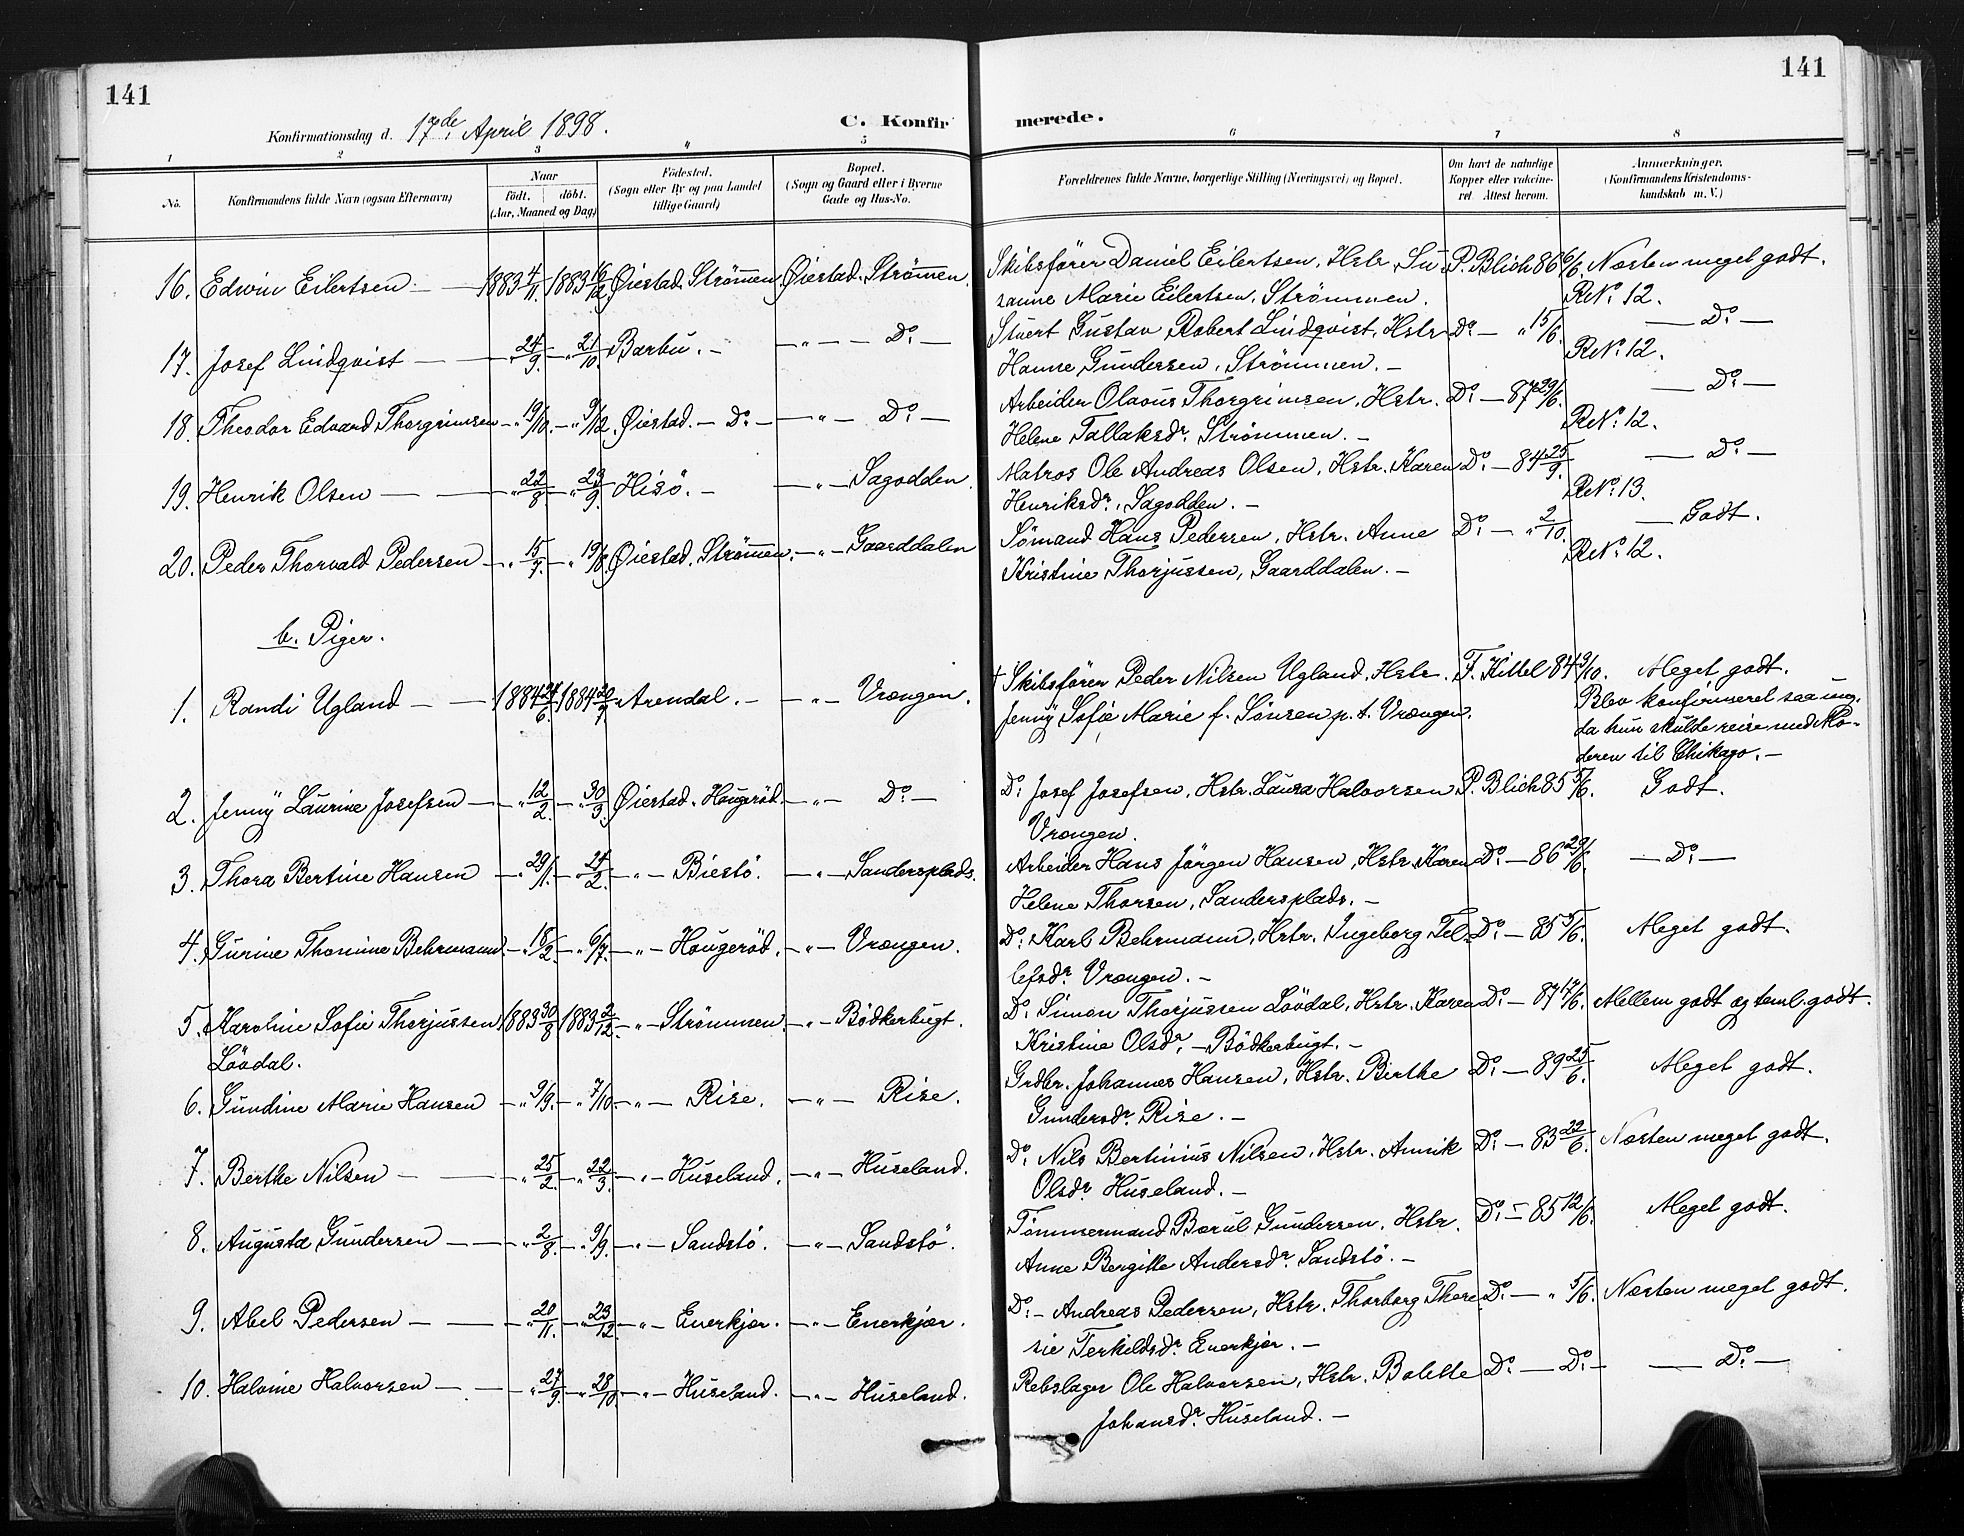 141
141
Konfirmationsdag d. 17de April 1898.
C. Konfirmerede.
1 2 3 4 5 6 7 8
No.
Konfirmandens fulde Navn (ogsaa Efternavn)
Naar
födt. döbt.
(Aar, Maaned og Dag)
Födested.
(Sogn eller By og paa Landet
tillige Gaard)
Bopæl.
(Sogn og Gaard eller i Byerne
Gade og Hus-No.
Forældrenes fulde Navne, borgerlige Stilling (Næringsvei) og Bopæl.
Om havt de naturlige
Kopper eller vakcine-
ret Attest herom.
Anmærkninger.
(Konfirmandens Kristendoms-
kundskab m. V.)
16. Edwin Eilertsen — 1883 4/11. — 1883 16/12. Øiestad. Strømmen. Øiestad. Strømmen. Skibsfører Daniel Eilertsen, Hstr. Su- P. Blich 86 6/6. Næsten meget godt.
sanne Marie Eilertsen, Strømmen. R.No. 12.
17. Josef Lindqvist — — " 24/9. — " 21/10. Barbu. — — " — Do. — Stuert Gustav Robert Lindqvist, Hstr. Do. — " 15/6. — Do. —
Hanne Gundersen, Strømmen. — R.No. 12.
18. Theodor Edvard Thorgrimsen — " 19/10. — " 9/12. Øiestad. — Do. — — " — Do. — Arbeider Olaous Thorgrimsen, Hstr. Do. — 87 29/6. — Do. —
Helene Tallaksdr. Strømmen. — R.No. 12.
19. Henrik Olsen — — " 22/8. — " 23/9. Hisö. — — " — Sagodden. Matros Ole Andreas Olsen, Hstr. Karen Do. — 84 25/9. — Do. —
Henriksdr., Sagodden. — R.No. 13.
20. Peder Thorvald Pedersen — " 15/7. — " 19/8. Øiestad. Strømmen. — " — Gaarddalen Sømand Hans Pedersen, Hstr. Anne Do. — " 2/10. — Godt.
Kristine Thorjussen, Gaarddalen. — R.No. 12.
b. Piger.
1. Randi Ugland — — 1884 24/6. 1884 20/7. Arendal. — — " — Vrængen. + Skibsfører Peder Nilsen Ugland, Hstr. F. Kittel 84 9/10. Meget godt.
Jenny Sofie Marie f. Sønsen p. t. Vrængen. Blev konfirmeret saa ung,
da hun skulde reise med Mo-
deren til Chikago. —
2. Jenny Laurine Josefsen — " 12/2. — " 30/3. Øiestad. Hougerød. — " — Do. — Do. Josef Josefsen, Hstr. Laura Halvorsen P. Blich 85 5/6. Godt.
Vrængen.
3. Thora Bertine Hansen — " 29/1. — " 24/2. — " — Biestö. — " — Sandersplads. Arbeider Hans Jörgen Hansen, Hstr. Karen Do. — 86 29/6. — Do. —
Helene Thorsen, Sandersplads. —
4. Gurine Thomine Behrmann. — " 18/2. — " 6/7. — " — Hougerød. — " — Vrængen. Do. Karl Behrmann, Hstr. Ingeborg Tel- Do. — 85 5/6. Meget godt.
lefsdr. Vrængen. —
5. Karoline Sofie Thorjussen 1883 30/8. 1883 2/12. — " — Strømmen — " — Bödkerbugt. Do. Simon Thorjussen Lövdal, Hstr. Karen Do. — 87 17/6. Mellem godt og teml. godt.
Lövdal. Kristine Olsdr. — Bödkerbugt. —
6. Gundine Marie Hansen — " 9/9. — " 7/10. — " — Rise. — " — Rise. Grdbr. Johannes Hansen, Hstr. Birthe Do. — 89 25/6. Meget godt.
Gundersdr. Rise. —
7. Berthe Nilsen — — " 25/2. — " 22/3. — " — Huseland. — " — Huseland. Do. Nils Bertinius Nilsen, Hstr. Annik Do. — 83 22/6. Næsten meget godt.
Olsdr. Huseland. —
8. Augusta Gundersen — — " 2/8. — " 9/9. — " — Sandstö. — " — Sandstö. Tømmermand Bærul Gundersen, Hstr. Do. — 85 12/6. Meget godt.
Anne Bergitte Andersdr. Sandstö. —
9. Abel Pedersen — — " 20/11. — " 23/12. — " — Enerkjær. — " — Enerkjær. Do. — Andreas Pedersen, Hstr. Thorborg There- Do. — " 5/6. Næsten meget godt.
sie Terkildsdr. Enerkjær. —
10. Halvine Halvorsen — — " 27/9. — " 28/10. — " — Huseland. — " — Huseland. Rebslager Ole Halvorsen, Hstr. Bolette Do. — Do. — — Do. —
Johansdr. Huseland. —